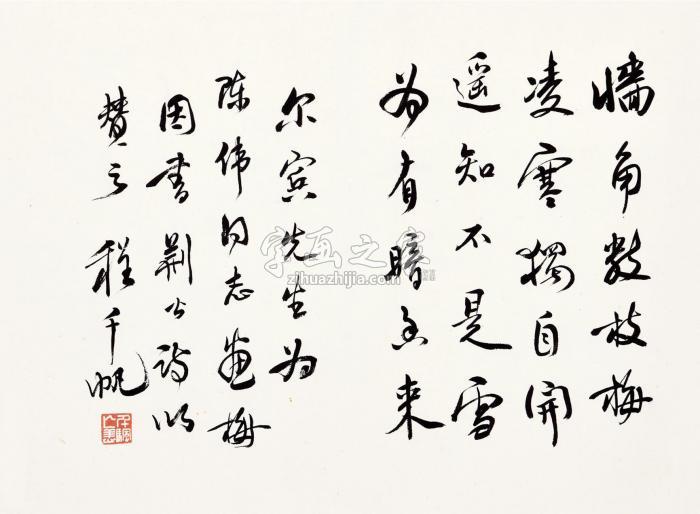 牆角数枝梅
凌寒獨自開
遥知不是雪
为有暗香来
尔宾先生为
陈伟同志画梅
因书荆公诗以
赞之 程千帆
字画之家
zihuazhijia.com